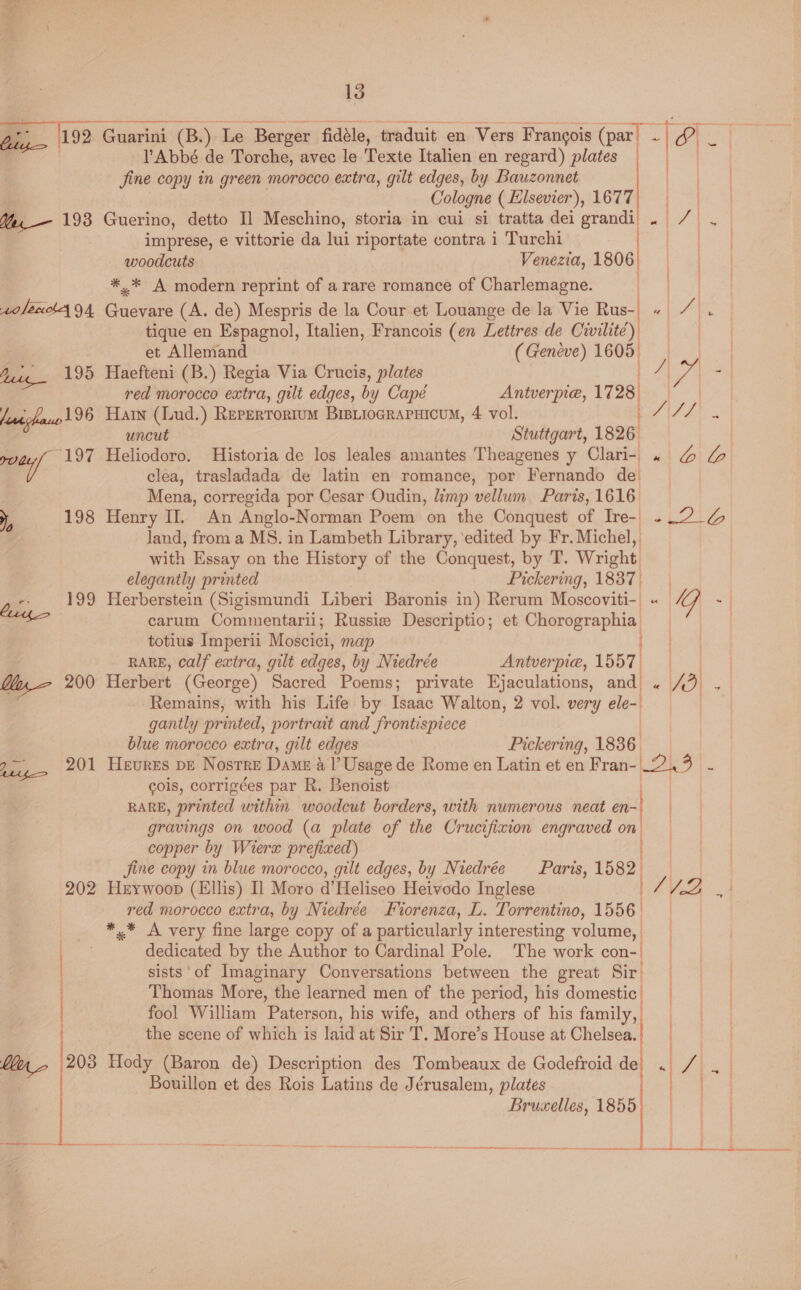 13
192 Guarini (B.) Le Berger fidéle, traduit en Vers François (par - 8 -
l'Abbé de Torche, avec le Texte Italien en regard) plates
fine copy in green morocco extra, gilt edges, by Bauzonnet
Cologne (Elsevier), 1677
193 Guerino, detto Il Meschino, storia in cui si tratta dei grandi - 1 -
imprese, e vittorie da lui riportate contra i Turchi
woodcuts Venezia, 1806
*** A modern reprint of a rare romance of Charlemagne.
194 Guevare (A. de) Mespris de la Cour et Louange de la Vie Rus- - 1 -
tique en Espagnol, Italien, Francois (en Lettres de Civilité)
et Allemand (Genève) 1605
195 Haefteni (B.) Regia Via Crucis, plates 1 7 -
red morocco extra, gilt edges, by Capé Antverpiæ, 1728
196 Hain (Lud.) Repertorium Bibliographicum, 4 vol. 1 11 -
uncut Stuttgart, 1826
197 Heliodoro. Historia de los leales amantes Theagenes y Clari- - 6 6
clea, trasladada de latin en romance, por Fernando de
Mena, corregida por Cesar Oudin, limp vellum Paris, 1616
198 Henry II. An Anglo-Norman Poem on the Conquest of Ire- - 2 6
land, from a MS. in Lambeth Library, edited by Fr. Michel,
with Essay on the History of the Conquest, by T. Wright
elegantly printed Pickering, 1837
199 Herberstein (Sigismundi Liberi Baronis in) Rerum Moscoviti- - 19 -
carum Commentarii; Russiæ Descriptio; et Chorographia
totius Imperii Moscici, map
RARE, calf extra, gilt edges, by Niedrée Antverpiæ, 1557
200 Herbert (George) Sacred Poems; private Ejaculations, and - 13 -
Remains, with his Life by Isaac Walton, 2 vol. very ele-
gantly printed, portrait and frontispiece
blue morocco extra, gilt edges Pickering, 1836
201 Heures de Nostre Dame à l'Usage de Rome en Latin et en Fran- 2 3 -
çois, corrigées par R. Benoist
RARE, printed within woodcut borders, with numerous neat en-
gravings on wood (a plate of the Crucifixion engraved on
copper by Wierx prefixed)
fine copy in blue morocco, gilt edges, by Niedrée Paris, 1582
202 Heywood (Ellis) Il Moro d'Heliseo Heivodo Inglese 1 12 -
red morocco extra, by Niedrée Fiorenza, L. Torrentino, 1556
*** A very fine large copy of a particularly interesting volume,
dedicated by the Author to Cardinal Pole. The work con-
sists of Imaginary Conversations between the great Sir
Thomas More, the learned men of the period, his domestic
fool William Paterson, his wife, and others of his family,
the scene of which is laid at Sir T. More's House at Chelsea.
203 Hody (Baron de) Description des Tombeaux de Godefroid de - 1 -
Bouillon et des Rois Latins de Jérusalem, plates
Bruxelles, 1855